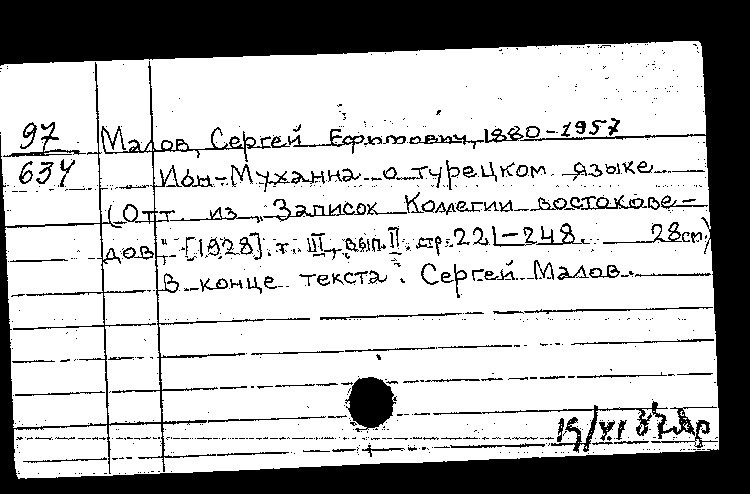 97 Малов, Сергей Ефимович, 1880-1957
634 Ибн-Муханна о турецком языке
(Отт. из „Записок Коллегии востокове-
дов", [1928]. т. III, вып. II. стр. 221-248. 28 см)
В конце текста: Сергей Малов.
19/XI 87